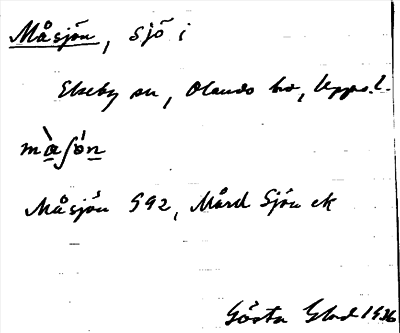 Måsjön, sjö i
Ekeby sn, Olands hd, Upps. l.
Måsjön 592, Mård Sjön ek
Gösta Glad 1936